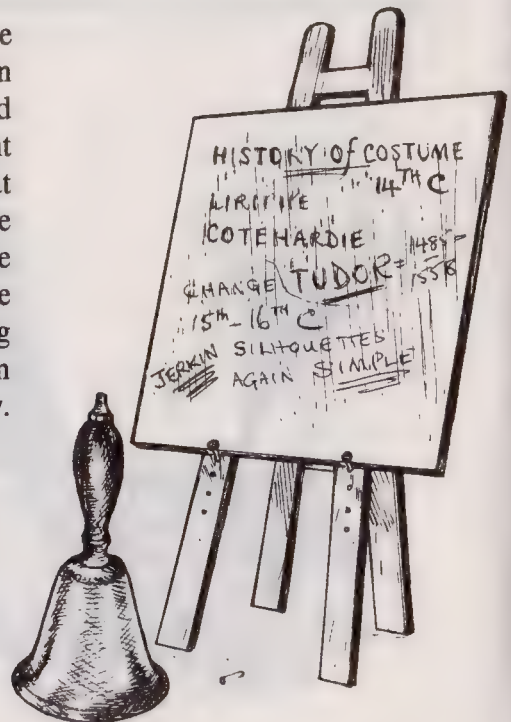 e
n
d
nt
at
e
e
e
g
n
y.
HISTORY of COSTUME
14TH C
LIRIPIPE
COTEHARDIE
CHANGE TUDOR = 1485-
1558
15th-16TH C
JERKIN SILHOUETTES
AGAIN SIMPLE